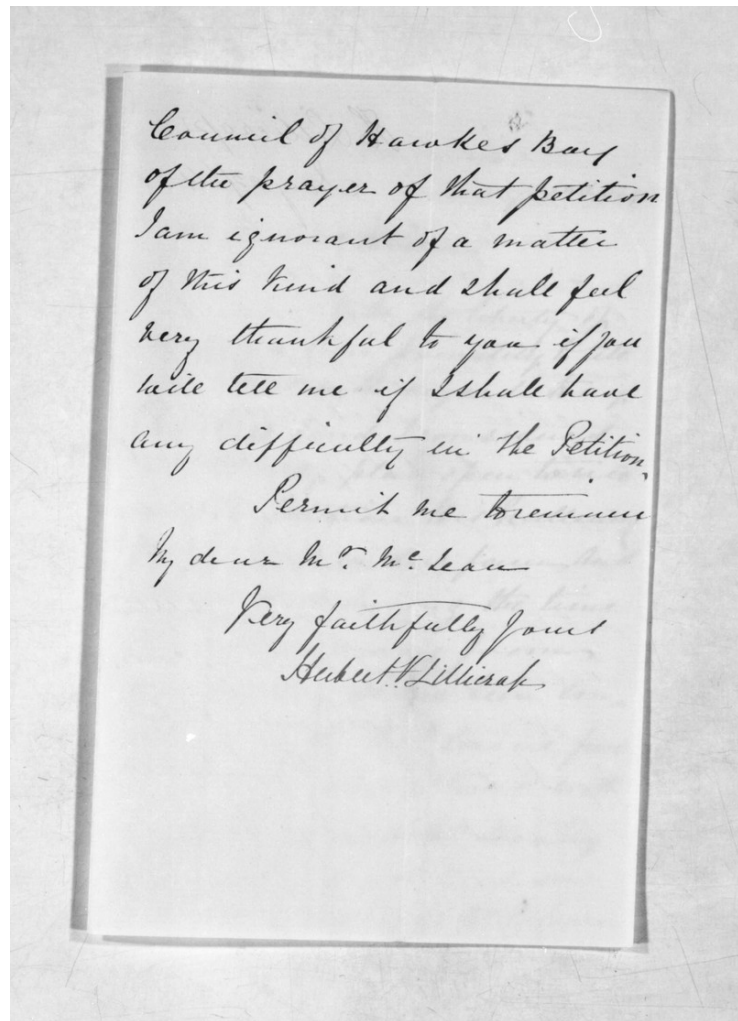 Council of Hawkes Bay
of the prayer of that petition
I am ignorant of a matter
of this kind and shall feel
very thankful to you if you
will tell me if I shall have
any difficulty in the Petition.
Permit me to remain
My dear Mr. McLean
Very faithfully yours
Herbert V. Lillicrap